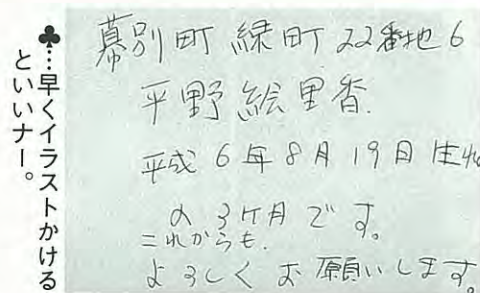 幕別町 緑町 22番地6
平野絵里香.
平成6年8月19日生れ
の3ケ月です。
これからも.
よろしくお願いします。
♣…早くイラストかける
といいナー。